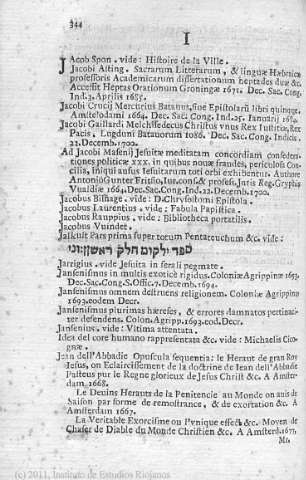 344
I
Jacob Spon. vide: Histoire de la Ville.
Jacobi Alting. Sacrarum Litterarum, & linguæ Hæbraicæ
professoris Academicarum dissertationum heptades duæ &c.
Accessit Heptas Orationum Groningæ 1671. Dec. Sac. Cong.
Ind. 3. Aprilis 1685.
Jacobi Crucij Mercurius Batavus, sive Epistolarū libri quinque.
Amstelodami 1664. Dec. Sac. Cong. Ind. 25. Januarij 1684.
Jacobi Gaillardi Melchisedecus Christus vnus Rex Iustitiæ, Rex
Pacis. Lugduni Batauorum 1686. Dec. Sac. Cong. Indicis
22. Decemb. 1700.
Ad Jacobi Masenij Jesuitæ meditatam concordiam confedera-
tiones politicæ XXX. in quibus nouæ fraudes, periculosa Con-
cilia, iniqui ausus Iesuitarum toti orbi exhibentur. Authore
Antonio Gunter Fritsio, Iur. consf. & profess. Iuris Reg. Gryphs
Vualdiæ 1664. Dec. Sac. Cong. Ind. 22. Decemb. 1700.
Jacobus Bishage. vide: D. Chrysostomi Epistola.
Jacobus Laurentius. vide: Fabula Papistica.
Jacobus Rauppius. vide: Bibliotheca portatilis.
Jacobus Vuindet.
Jalkult Pars prima super totum Pentateuchum &c. vide:
ספר ילקוט חלק ראשון
Jarrigius. vide Jesuita in ferali pegmate.
Jansenismus in multis exoticè rigidus. Coloniæ Agrippinæ 1693.
Dec. Sac. Cong. S. Offic. 7. Decemb. 1694.
Jansenismus omnem destruens religionem. Coloniæ Agrippinæ
1693. eodem Decr.
Jansenismus plurimas hæreses, & errores damnatos pertinaci-
ter defendens. Colon. Agripp. 1693. eod. Decr.
Jansenius. vide: Vitima attentata.
Idea del core humano rappresentata &c. vide: Michaelis Cio-
gnæ.
Jean dell'Abbadie Opuscula sequentia: le Heraut de gran Roy
Jesus, ou Eclaircissement de la doctrine de Iean dell'Abbadie
Pasteus pur le Regne glorieux de Jesus Christ &c. A Amster-
dam. 1668.
Le Devins Herauts de la Penitencie au Monde on auis de
Saison par forme de remostrance, & de exortation &c. A
Amsterdam 1667.
La Veritable Exorcisme ou l'vnique essect &c. Moyen de
Chaser de Diable du Monde Christien &c. A Amsterd. 1677.
(c) 2011, Instituto de Estudios Riojanos